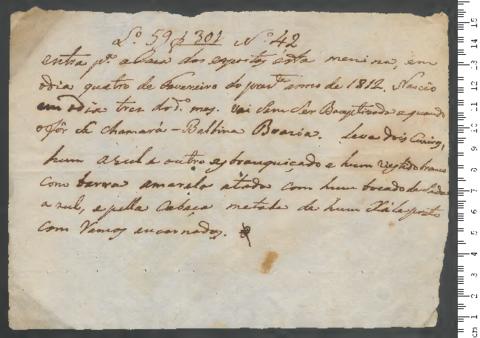 Lº 59 f 301 Nº 42
entra pª a Caza dos expostos esta menina, em
o dia quatro de Fevereiro do prezte anno de 1812. Nasçeo
em o dia tres do dº mez. vai Sem Ser Baptizada e quando
o fôr se chamará - Balbina Boaria. Leva dois Cueiros,
hum azul e outro esbranquiçado e hum vestido branco
com barra amarela atado com hum bocado de
azul, e pella Cabeça metade de hum Xále preto
com Ramos encarnados.